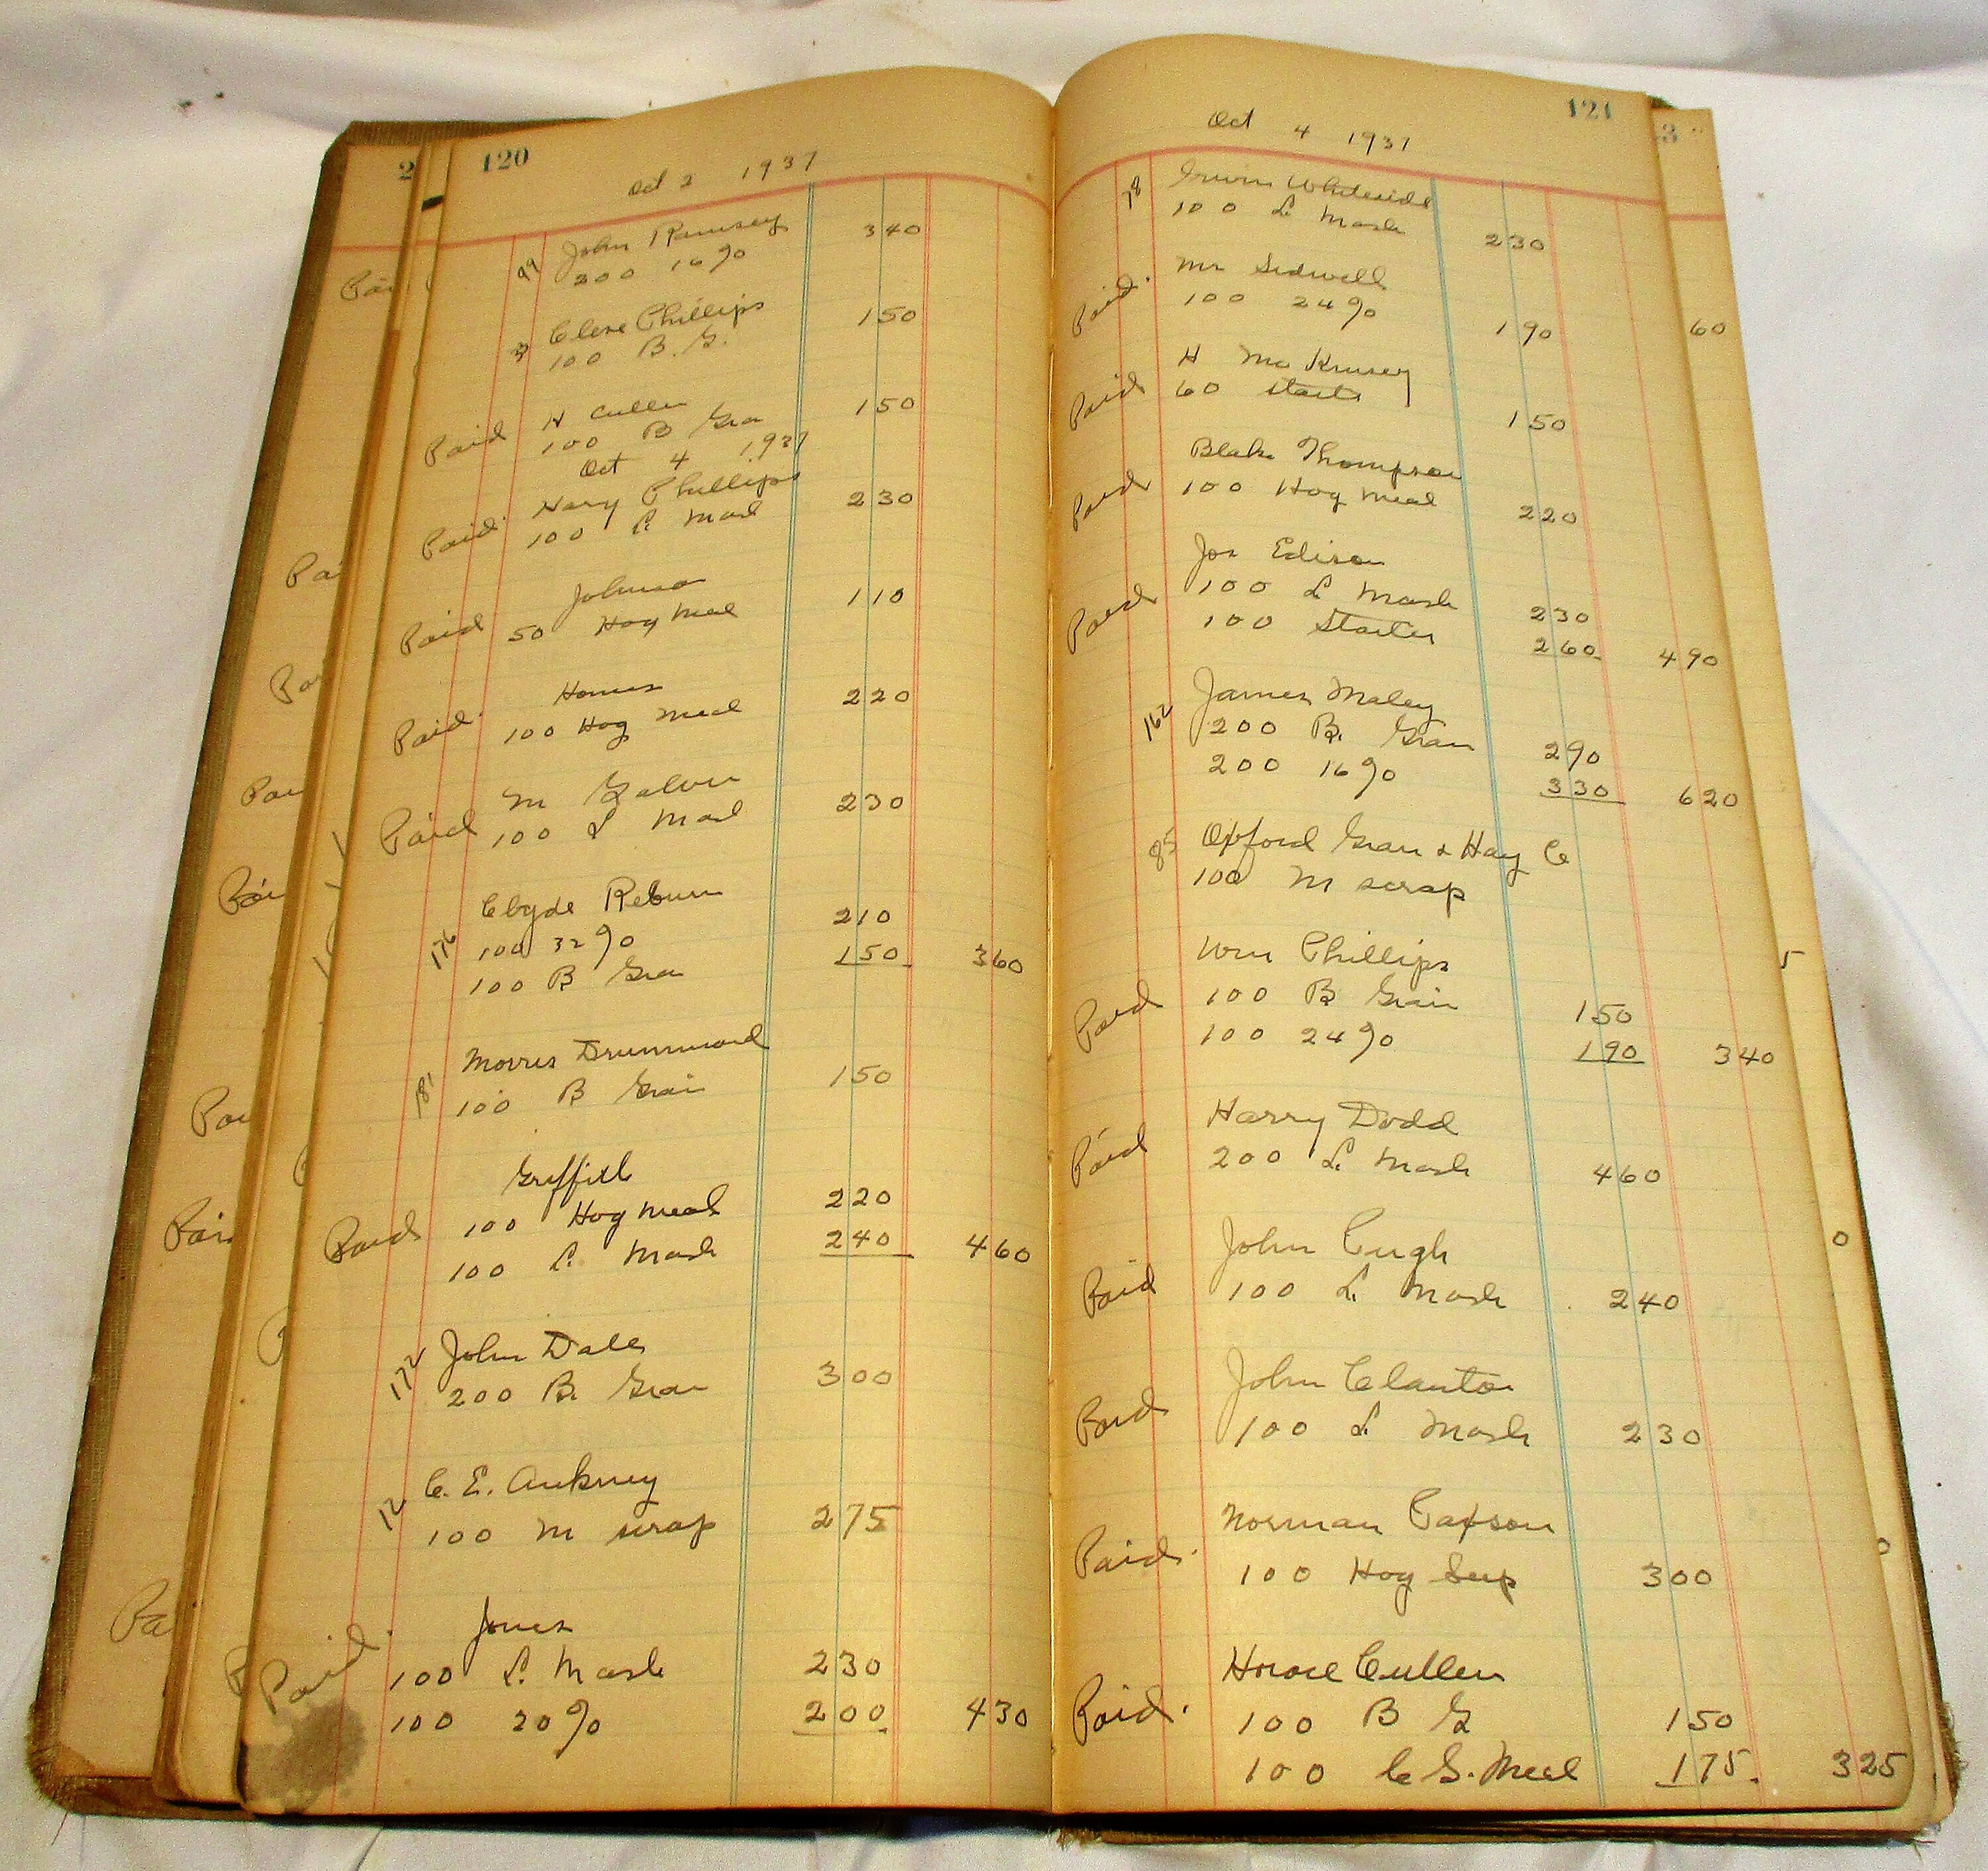 2
120
Oct 2 1937
99 John Ramsey
200 16% 340
33 Clere Phillips
100 B. G. 150
Paid H Cullen
100 B Gran 150
Oct 4 1937
Paid. Harry Phillips
100 L. Mash 230
Paid Johnson
50 Hog Meal 110
Paid. Homer
100 Hog Meal 220
Paid M Galvin
100 L Mash 230
176 Clyde Reburn
100 32% 210
100 B Gran 150 360
181 Morris Drummond
100 B Grain 150
Griffith
Paid 100 Hog Meal 220
100 L. Mash 240 460
172 John Dales
200 B. Gran 300
12 C. E. Ankney
100 M scrap 275
Paid. Jones
100 L. Mash 230
100 20% 200 430
121
Oct 4 1937
78 Irwin Whiteside
100 L Mash 230
Paid. Mr Sidwell
100 24% 190
Paid H Mc Krusey
60 starter 150
Paid Blake Thompson
100 Hog Meal 220
Jos Edison
Paid 100 L Mash 230
100 Starter 260 490
162 James Maley
200 B. Gran 290
200 16% 330 620
85 Oxford Gran & Hay Co
100 M scrap
Wm Phillips
Paid 100 B Grain 150
100 24% 190 340
Paid Harry Dodd
200 L. Mash 460
John Pugh
Paid 100 L. Mash 240
John Clanton
Paid 100 L Mash 230
Norman Paxson
Paid. 100 Hog Sup 300
Horace Cullen
Paid. 100 B G 150
100 C S. Meal 175 325
60